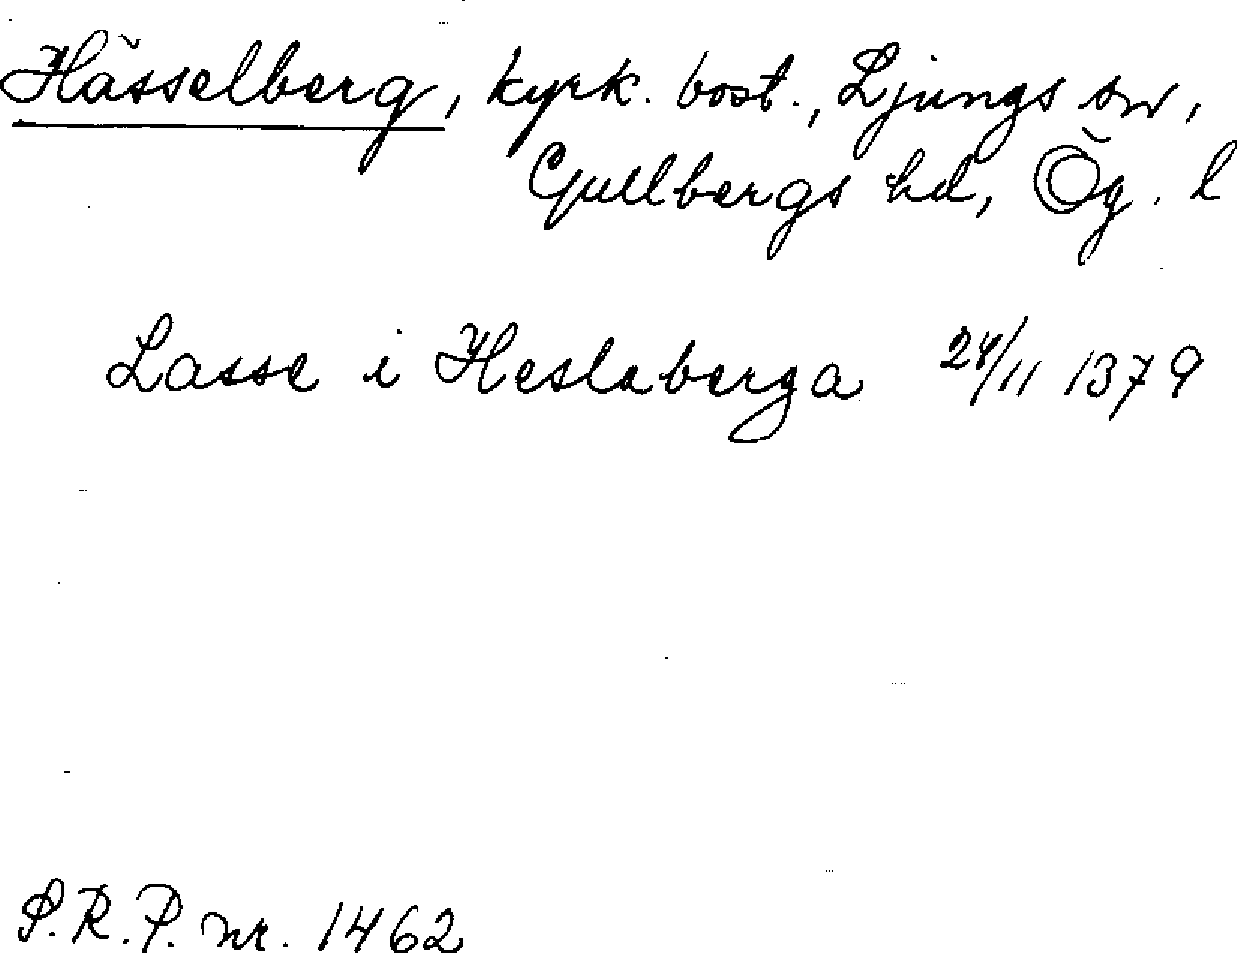 Hässelberg, kyrk. bost., Ljungs sn,
Gullbergs hd, Ög. l
Lasse i Heslaberga 24/11 1379
S.R.P. nr. 1462